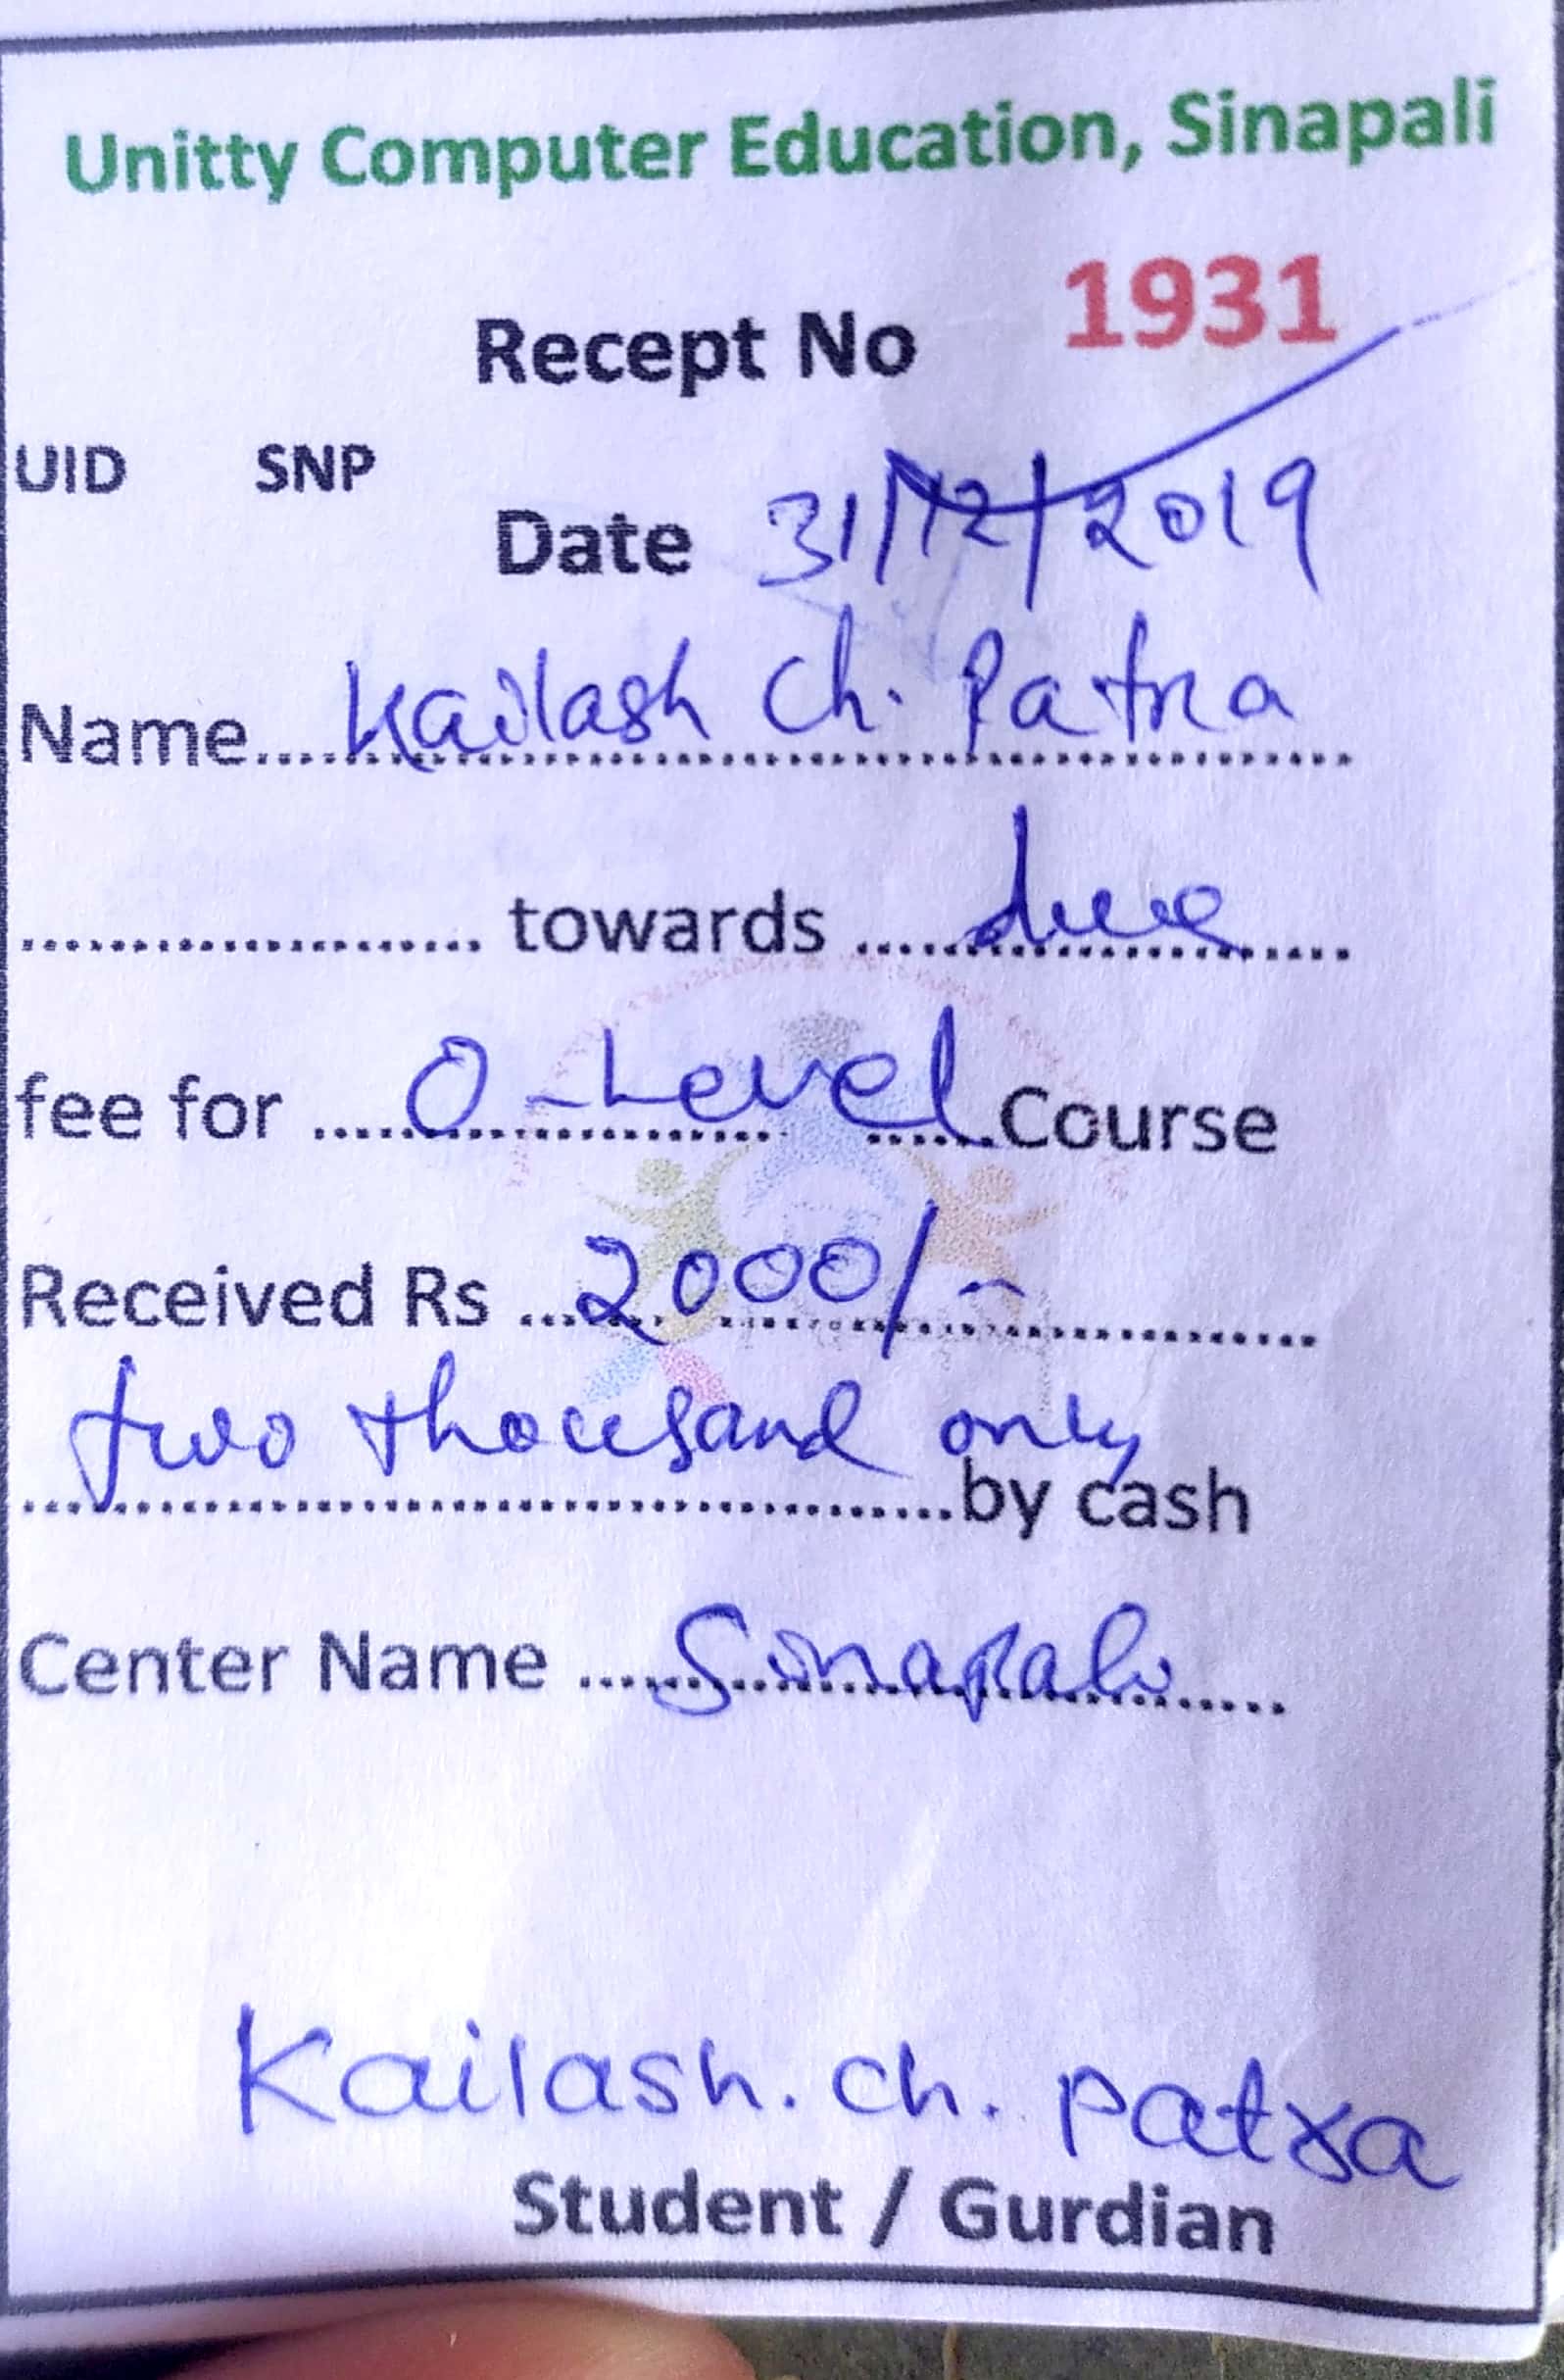 Unitty Computer Education, Sinapali
Recept No 1931
UID SNP
Date 31/12/2019
Name.... Kailash Ch. Patra
.................... towards .... due
fee for .... O-Level ......Course
Received Rs .... 2000/-
two thousand only
....................by cash
Center Name .... Sinapali
Kailash. ch. patra
Student / Gurdian